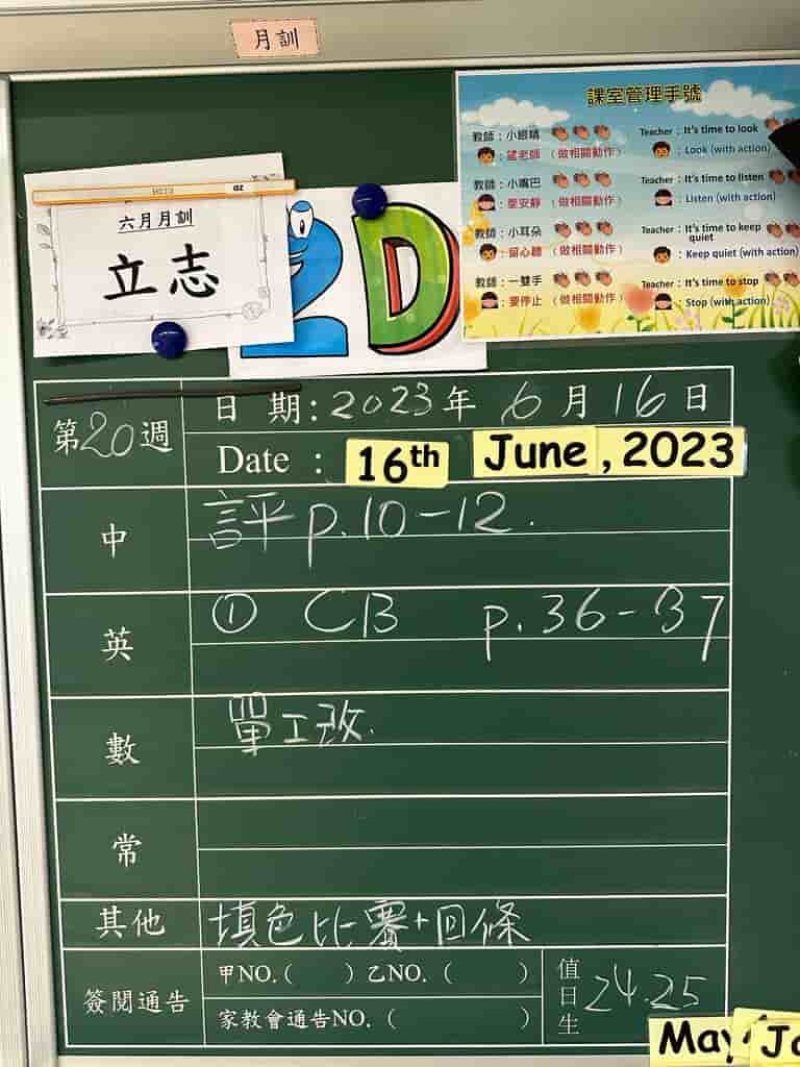 月訓
課室管理手號
教師:小眼睛 Teacher : It's time to look
:望老師 (做相關動作) : Look (with action)
教師:小嘴巴 Teacher : It's time to listen
:要安靜 (做相關動作) : Listen (with action)
教師:小耳朵 Teacher : It's time to keep quiet
:留心聽 (做相關動作) : Keep quiet (with action)
教師:一雙手 Teacher : It's time to stop
:要停止 (做相關動作) : Stop (with action)
六月月訓
立志
2D
第20週 日 期: 2023年 6月16日
Date : 16th June , 2023
中 評 p.10-12.
英 ① CB p.36-37
數 單工改.
常
其他 填色比賽+回條
簽閱通告 甲NO.( ) 乙NO. ( )
家教會通告NO. ( )
值日生 24.25
May